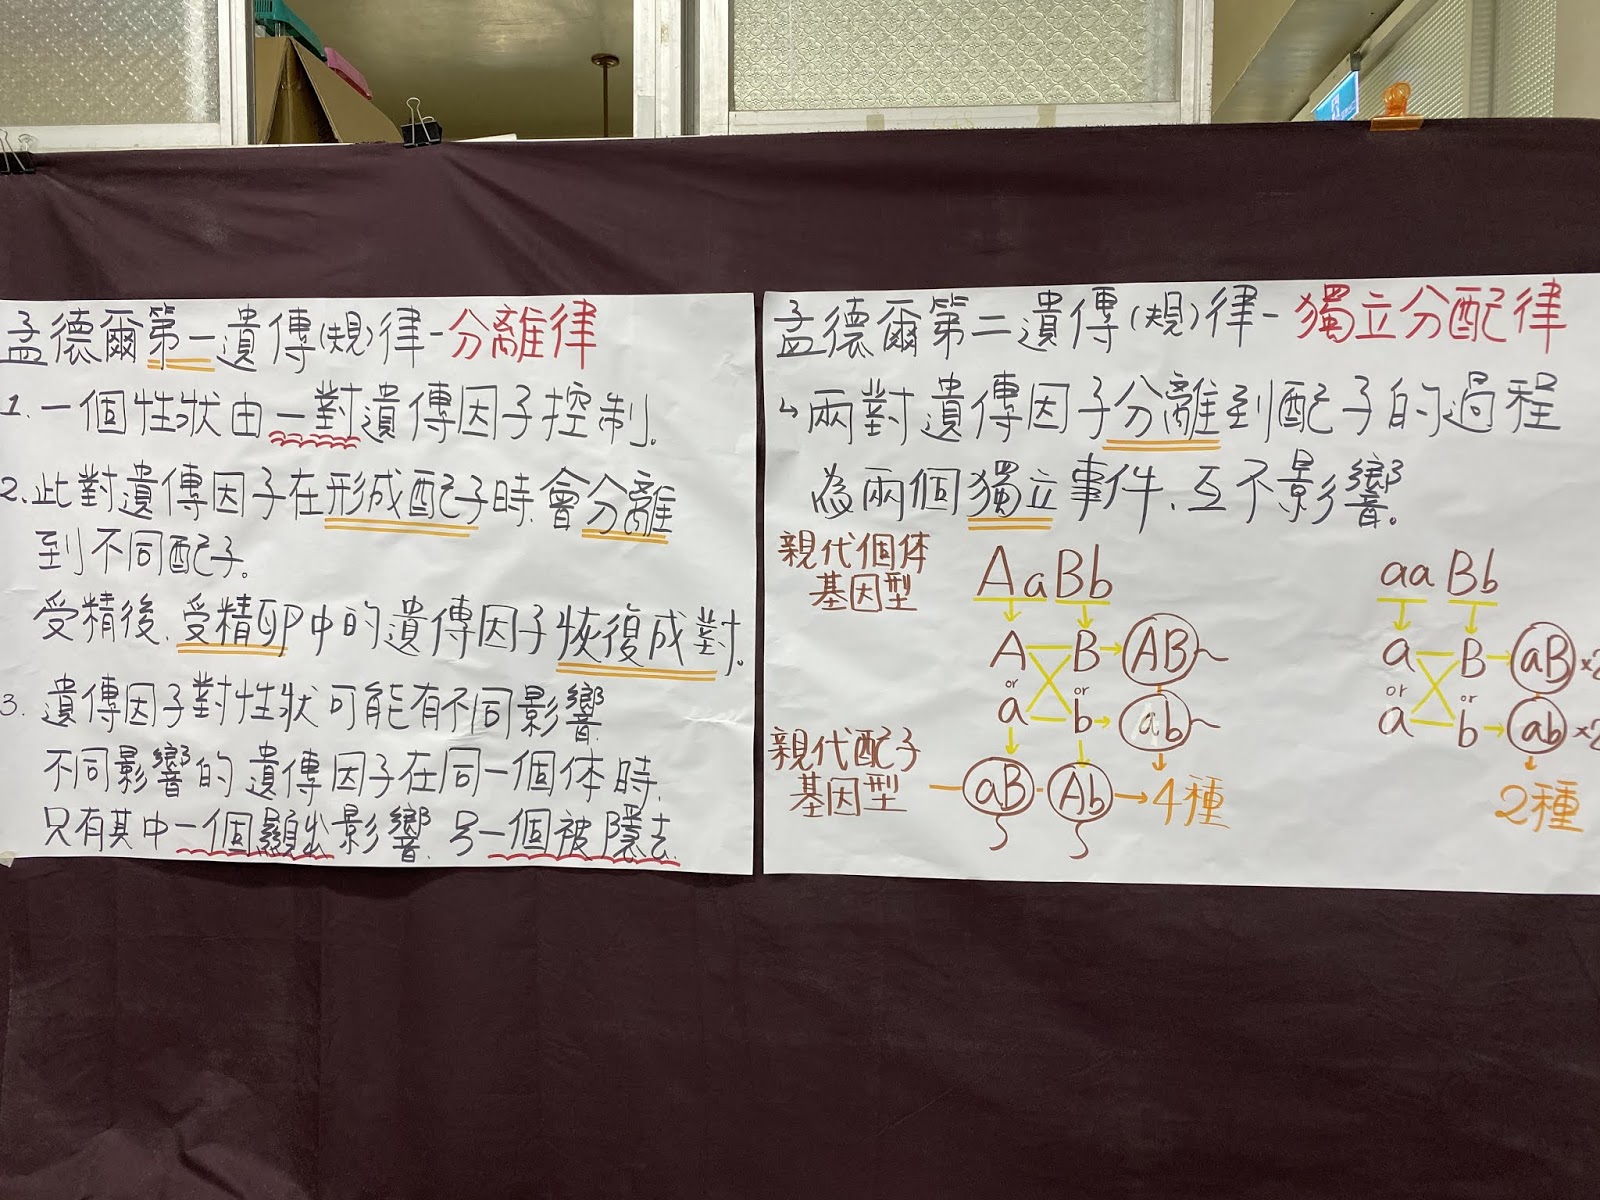 孟德爾第一遺傳(規)律-分離律
1. 一個性狀由一對遺傳因子控制。
2. 此對遺傳因子在形成配子時,會分離
到不同配子。
受精後,受精卵中的遺傳因子恢復成對。
3. 遺傳因子對性狀可能有不同影響
不同影響的遺傳因子在同一個体時,
只有其中一個顯出影響,另一個被隱去.
孟德爾第二遺傳(規)律-獨立分配律
↳兩對遺傳因子分離到配子的過程
為兩個獨立事件、互不影響。
親代個体
基因型
AaBb
A B → AB
or or
a b → ab
親代配子
基因型
aB Ab → 4種
aaBb
a B → aB ×2
or or
a b → ab ×2
2種